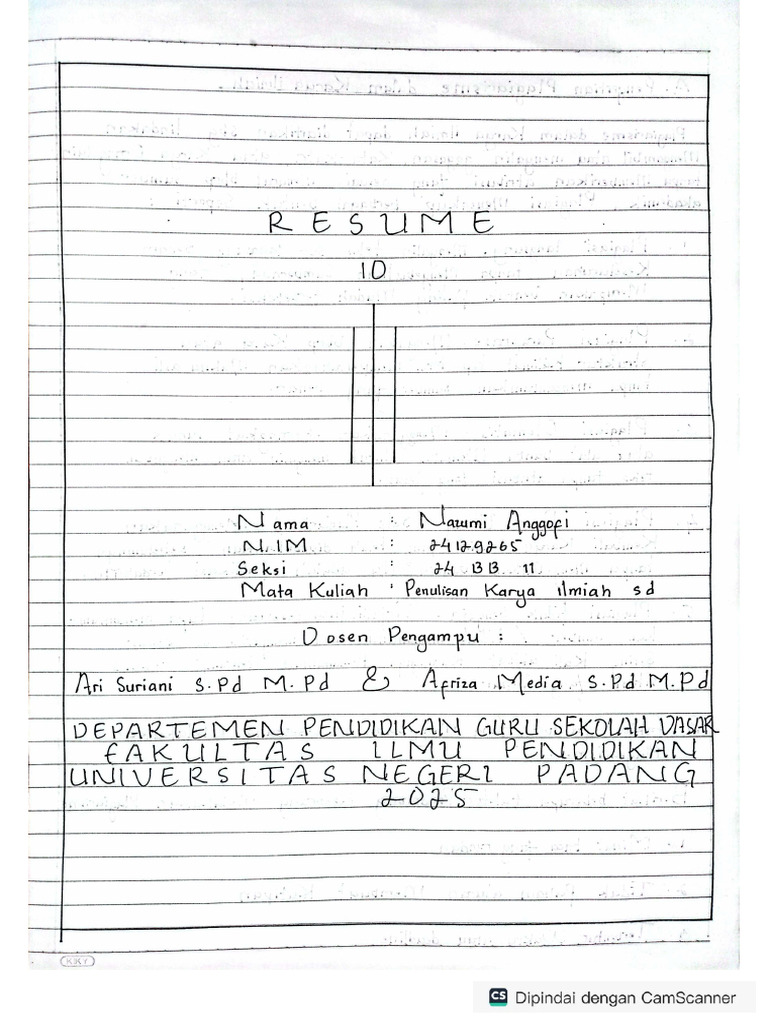 RESUME
10
Nama : Nazumi Anggopi
N.IM : 24129265
Seksi : 24 BB 11
Mata Kuliah : Penulisan Karya ilmiah sd
Dosen Pengampu :
Ari Suriani S.Pd M.Pd & Afriza Media S.Pd M.Pd
DEPARTEMEN PENDIDIKAN GURU SEKOLAH DASAR
FAKULTAS ILMU PENDIDIKAN
UNIVERSITAS NEGERI PADANG
2025
KKY
CS Dipindai dengan CamScanner